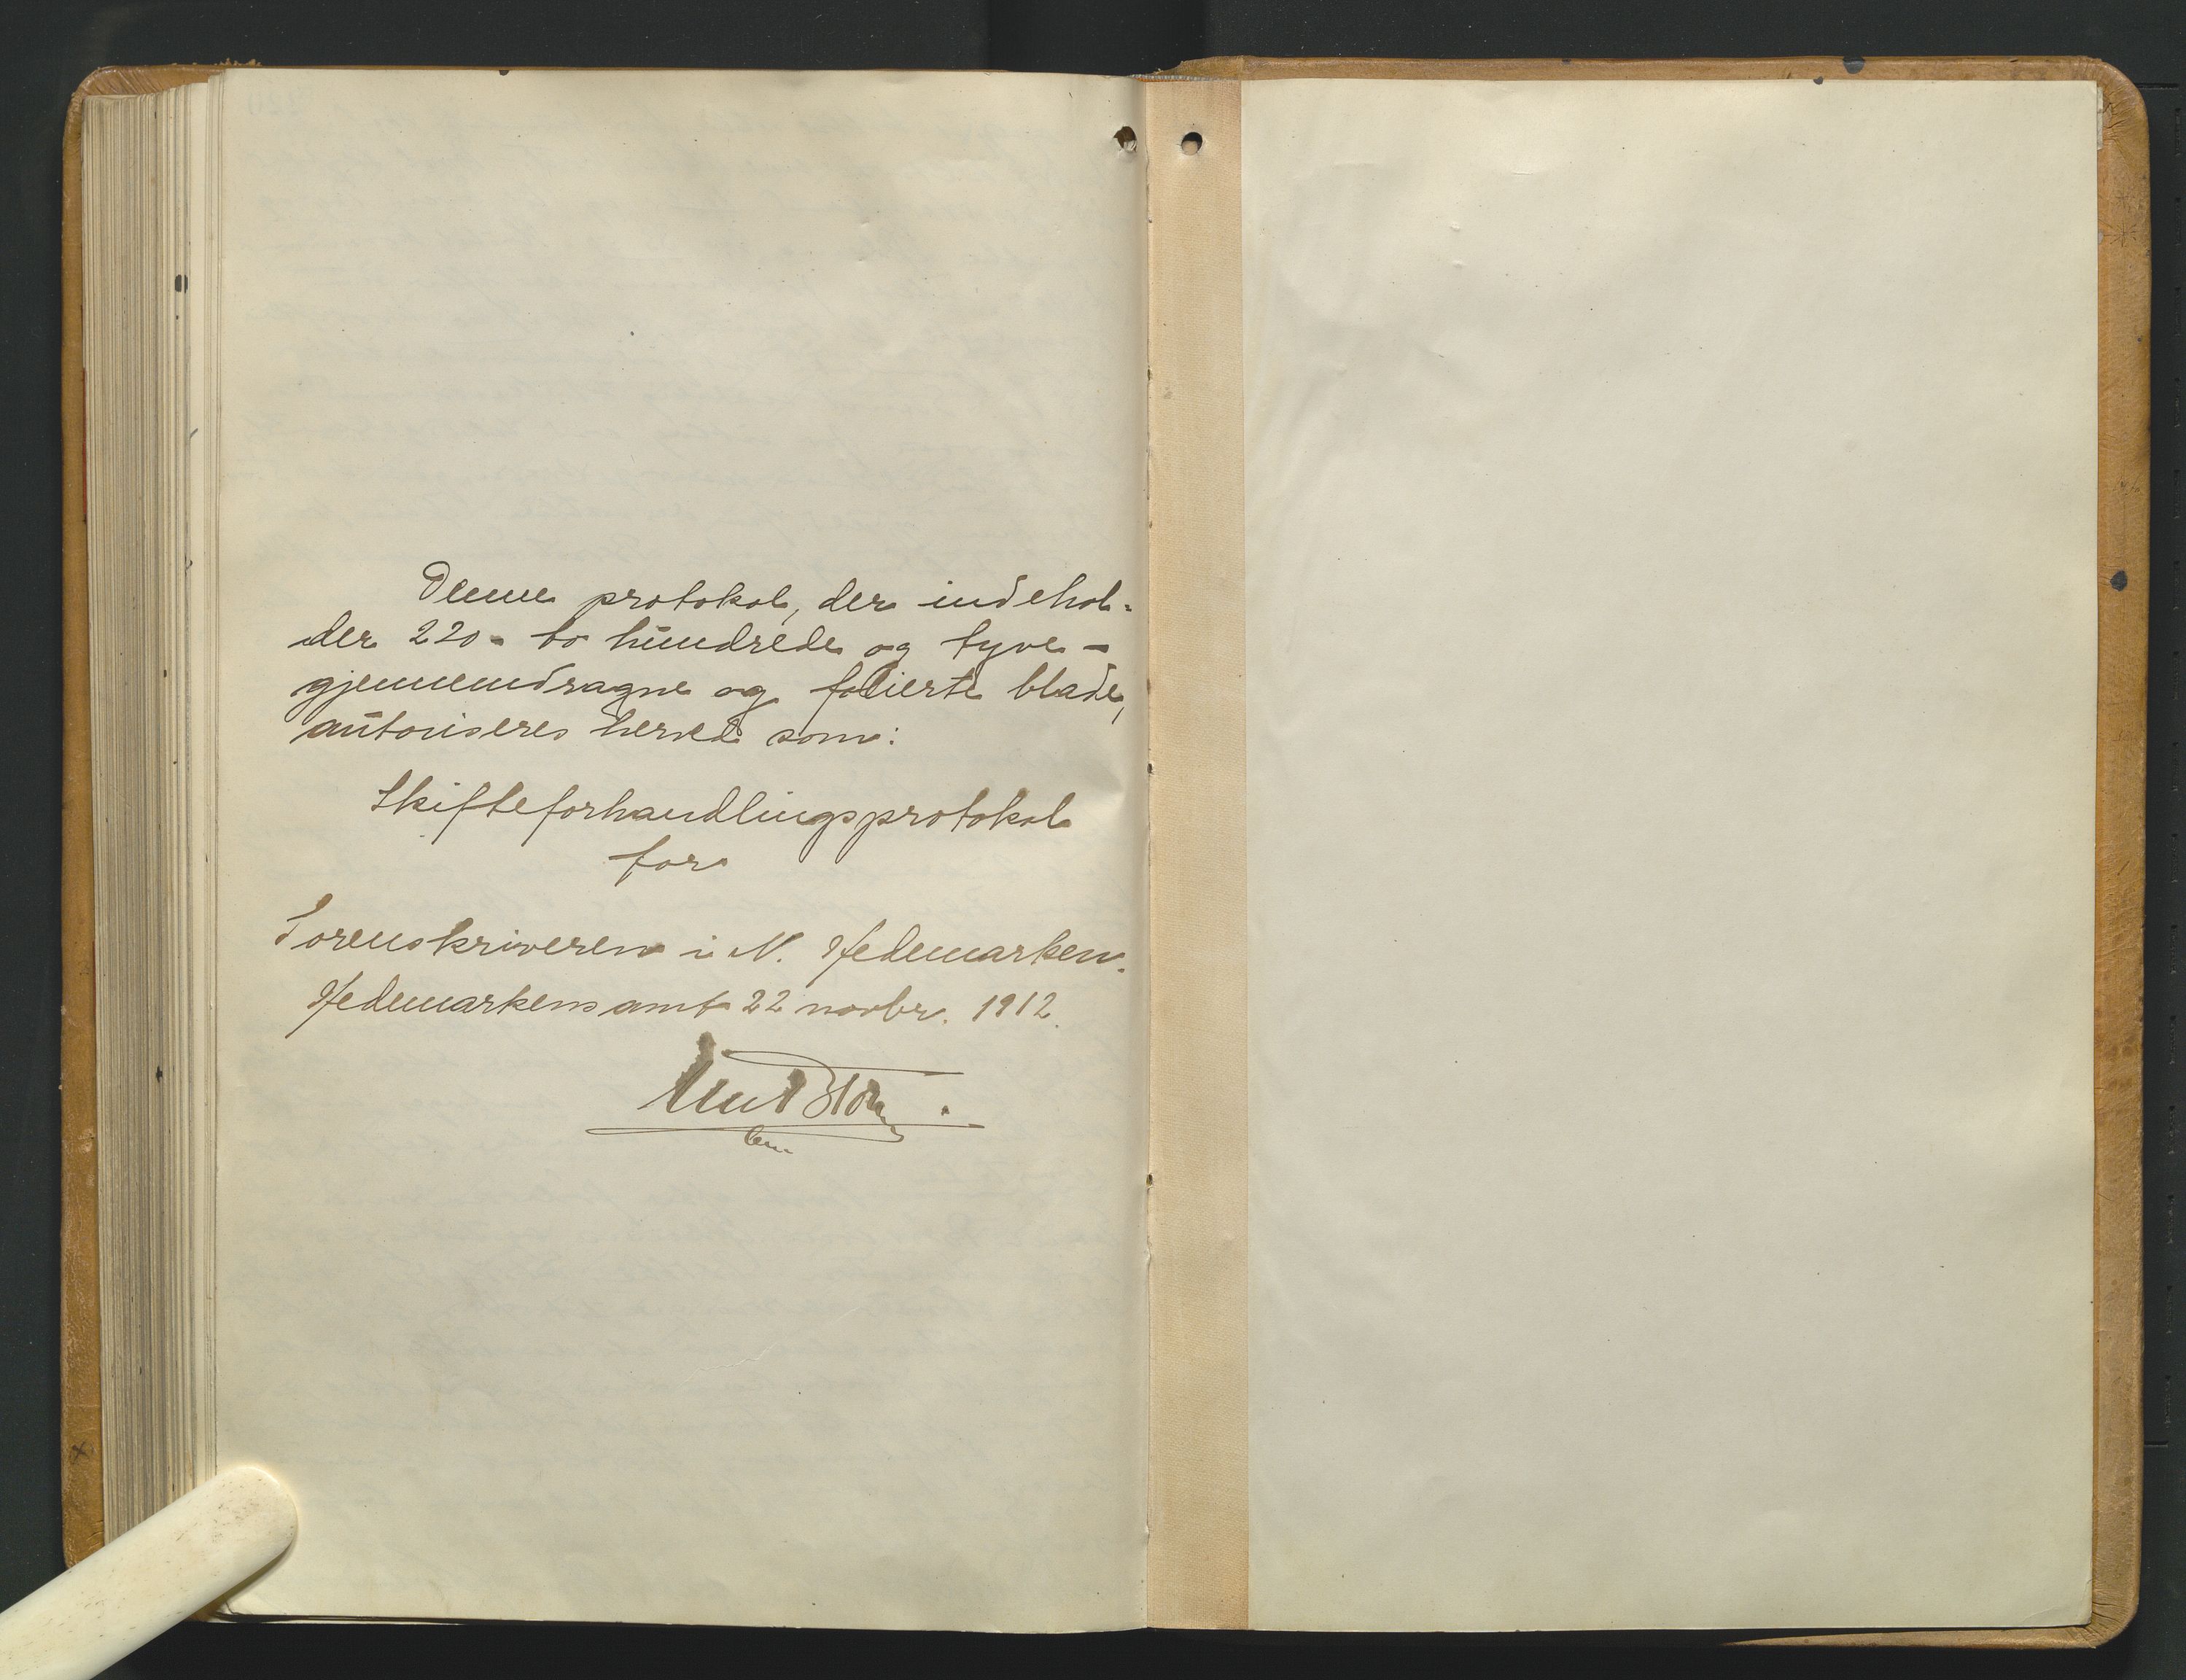 Denne protokol, der indehol-
der 220 - to hundrede og tyve -
gjennemdragne og folierte blade,
autoriseres herved som:
Skifteforhandlingsprotokol
for
Sorenskriveren i N. Hedemarken.
Hedemarkens amt 22 novbr. 1912.